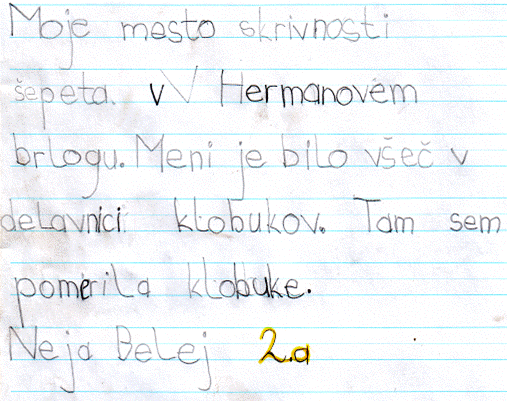 Moje mesto skrivnosti
šepeta. v V Hermanovem
brlogu. Meni je bilo všeč v
delavnici klobukov. Tam sem
pomerila klobuke.
Neja Belej 2.a